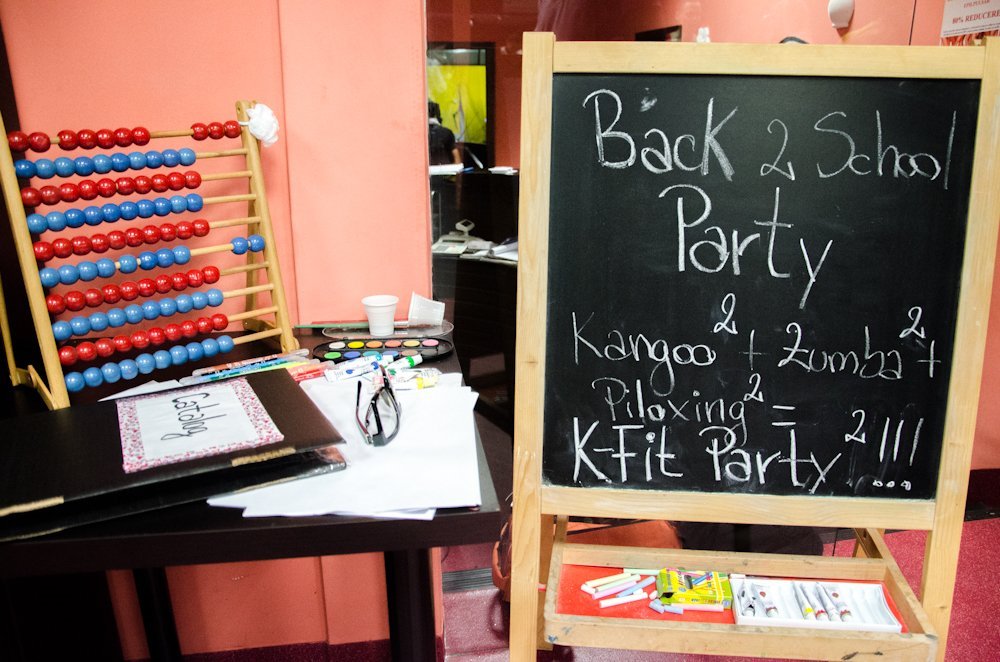 Back 2 School
Party
Kangoo² + Zumba² +
Piloxing² =
K-Fit Party² !!!
Catalog
80% REDUCERE